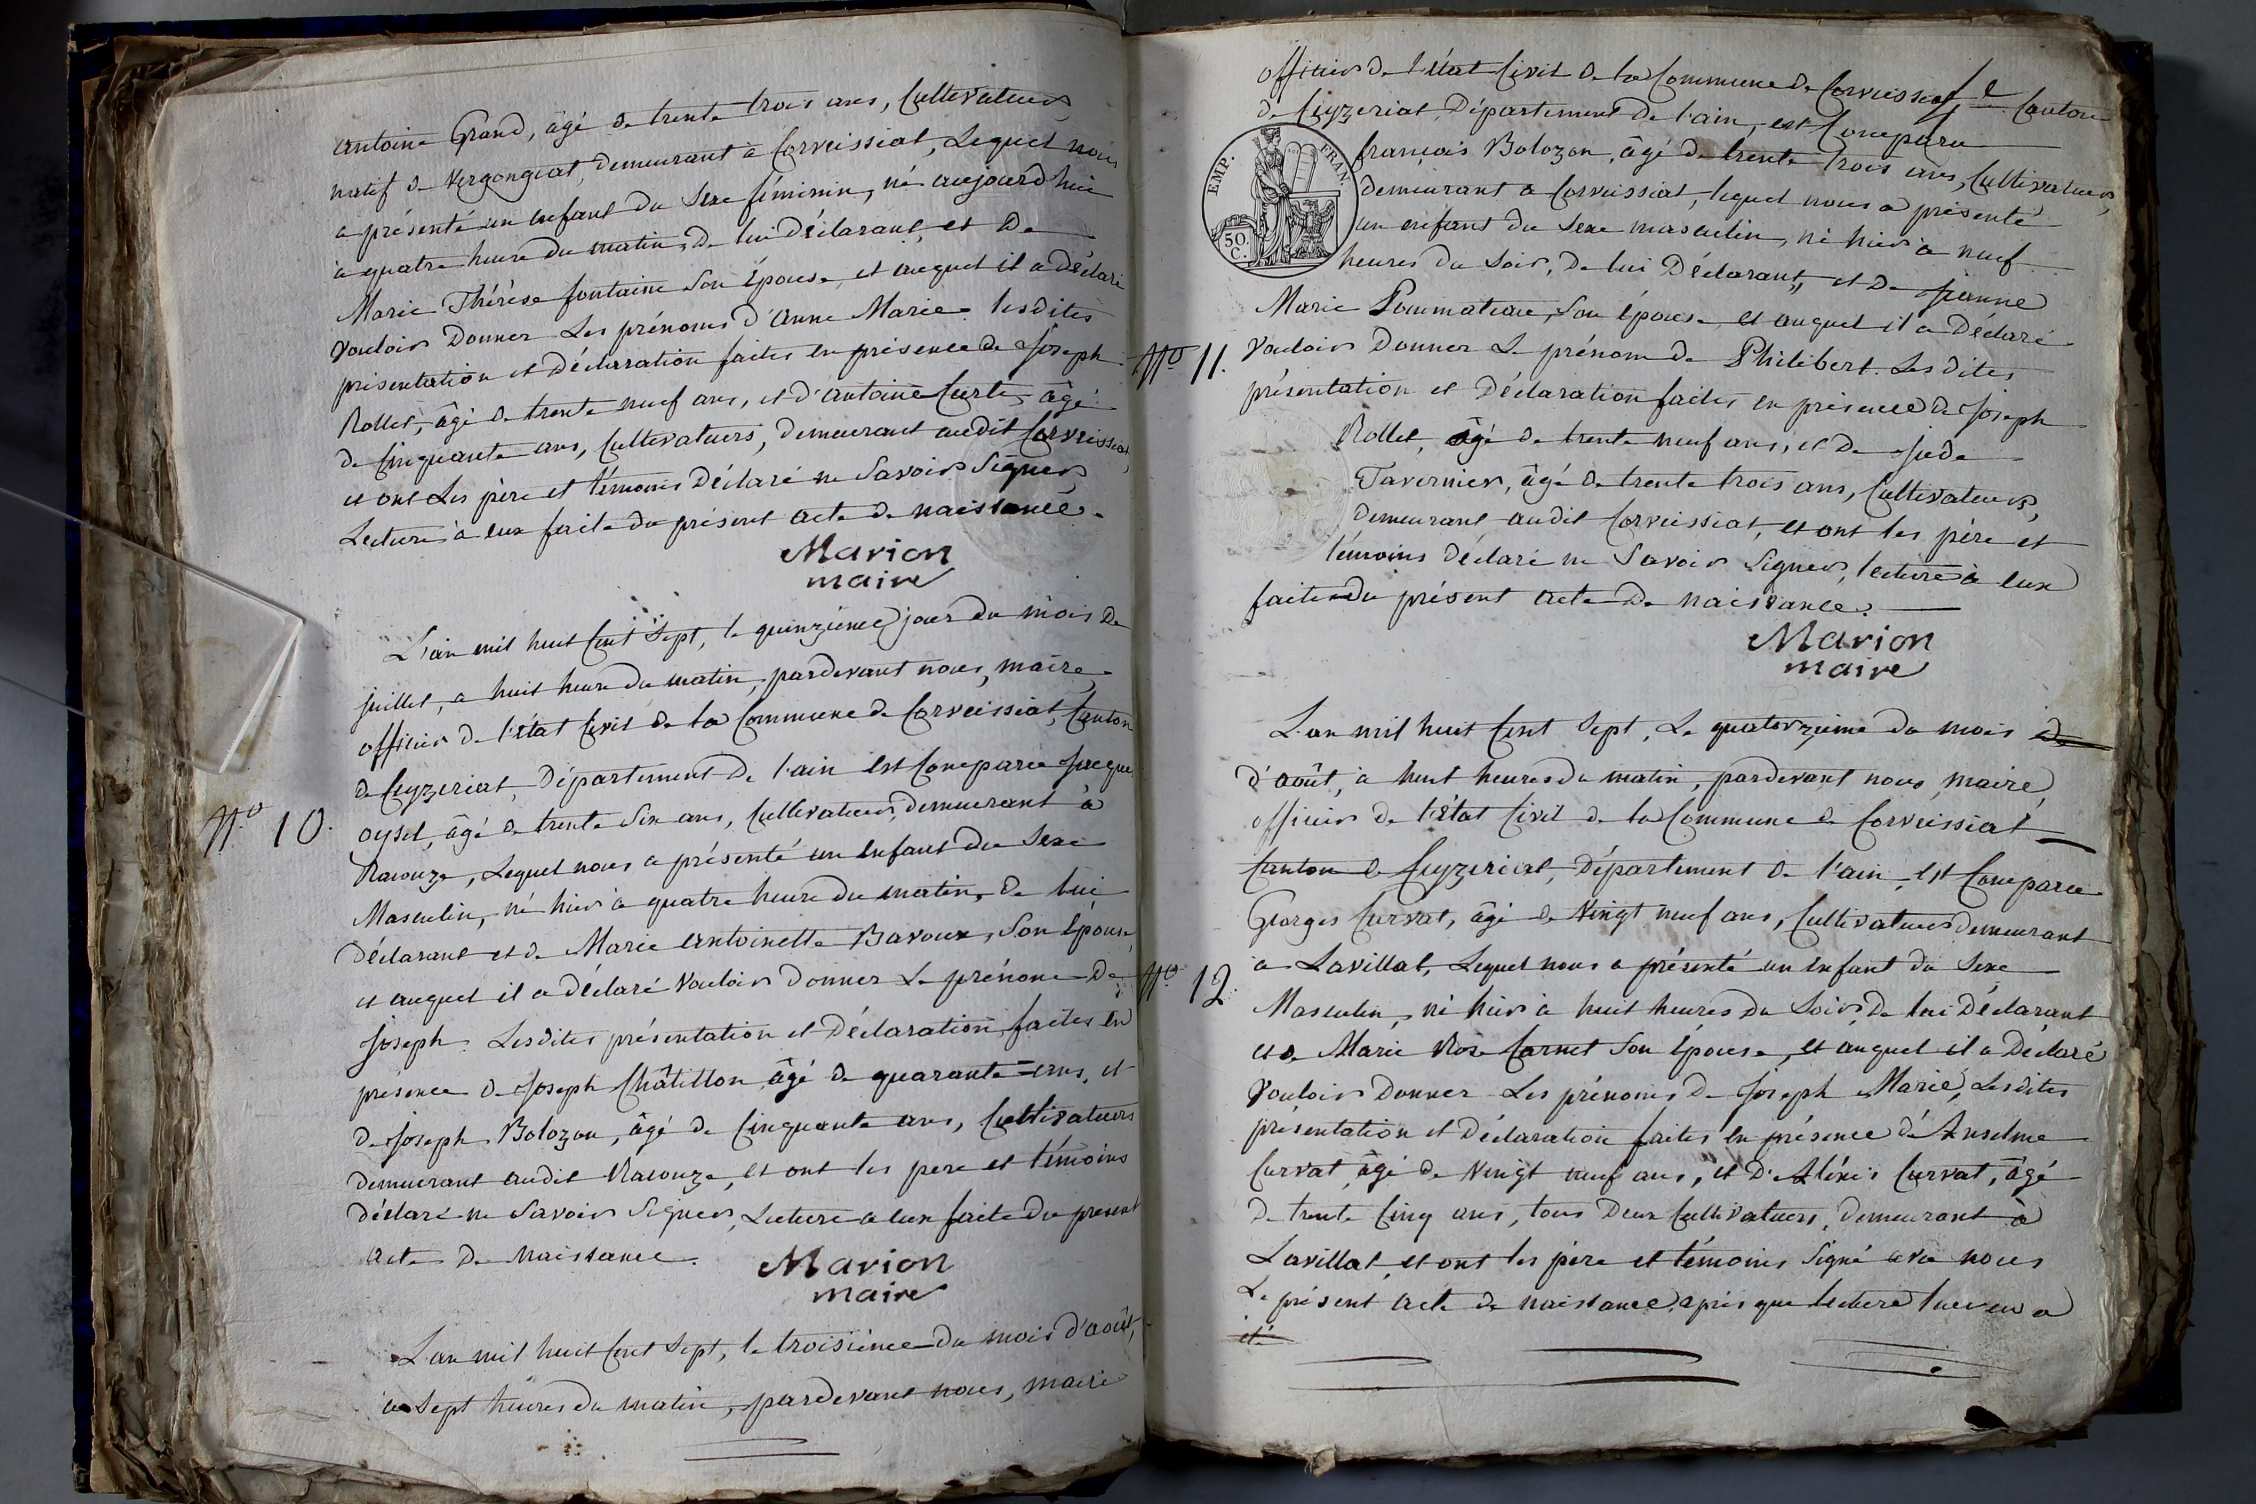 antoine Grand, âgé de trente trois ans, Cultivateur
natif de Vergongeat, demeurant à Corveissiat, Lequel nous
a présenté un enfant du Sexe féminin, né aujourd'hui
à quatre heure du matin, de lui Déclarant, et De
Marie Thérèse fontaine Son épouse, et auquel il a Déclaré
Vouloir Donner Les prénoms d'anne Marie. lesdites
présentation et Déclaration faites en présence de Joseph
Rollet, âgé de trente neuf ans, et d'antoine Curtet, âgé
de Cinquante ans, Cultivateurs, demeurant audit Corveissiat,
et ont Les père et témoins Déclaré ne Savoir Signer,
Lecture à eux faite du présent acte de naissance.
Marion
maire
L'an mil huit Cent Sept, le quinzième jour du mois de
juillet, a huit heure du matin, pardevant nous, maire,
officier de l'état Civil de la Commune de Corveissiat, Canton
de Ceyzeriat, Département de l'ain est Comparu Jacque
N.º 10.
oysel, âgé de trente Six ans, Cultivateur, demeurant à
Racouze, Lequel nous a présenté un Enfant du Sexe
Masculin, né hier à quatre heure du matin, de lui
Déclarant et de Marie antoinette Bavoux, Son épouse,
et auquel il a déclaré Vouloir Donner Le prénom De
Joseph. Lesdites présentation et Déclaration faites en
présence de Joseph Châtillon âgé de quarante = ans, et
de Joseph Bolozon, âgé de Cinquante ans, Cultivateurs
demeurant audit Racouze, et ont les pere et témoins
déclaré ne Savoir Signer, Lecture a eux faite du présent
acte de naissance.
Marion
maire
L'an mil huit Cent Sept, le troisième du mois d'août,
à Sept heures du matin, pardevant nous, maire
officier de l'état Civil de la Commune de Corveissiat Canton
de Ceyzeriat, Département de l'ain, est Comparu
EMP. FRAN.
50.
C.
françois Bolozon, âgé de trente trois ans, Cultivateur,
demeurant à Corveissiat, lequel nous a présenté
un enfant du Sexe masculin, né hier à neuf
heures du Soir, de lui Déclarant, et de Jeanne
Marie Pommateau, Son épouse, et auquel il a Déclaré
N.º 11.
Vouloir Donner Le prénom de Philibert. Lesdites
présentation et Déclaration faites en présence de Joseph
Rollet, âgé de trente neuf ans, et de Jude
Tavernier, âgé de trente trois ans, Cultivateurs,
demeurant audit Corveissiat, et ont les père et
témoins déclaré ne Savoir Signer, lecture à eux
faite du présent acte de naissance.
Marion
maire
L'an mil huit Cent Sept, Le quatorzième du mois de
d'août, à huit heures du matin, pardevant nous, maire,
officier de l'état Civil de la Commune de Corveissiat
Canton de Ceyzeriat, Département de l'ain, est Comparu
Georges Curvat, âgé de Vingt neuf ans, Cultivateur demeurant
a Lavillat, Lequel nous a présenté un enfant du Sexe
N.º 12.
Masculin, né hier à huit heures du Soir, de lui Déclarant
et de Marie Rose Carnet Son épouse, et auquel il a Déclaré
Vouloir Donner Les prénoms de Joseph Marie, Lesdites
présentation et Déclaration faites en présence d'Anselme
Curvat, âgé de Vingt neuf ans, et D'Alexis Curvat, âgé
de trente Cinq ans, tous Deux Cultivateurs, demeurant à
Lavillat, et ont les père et témoins Signé avec nous
Le présent acte de naissance, après que lecture leur en a
été